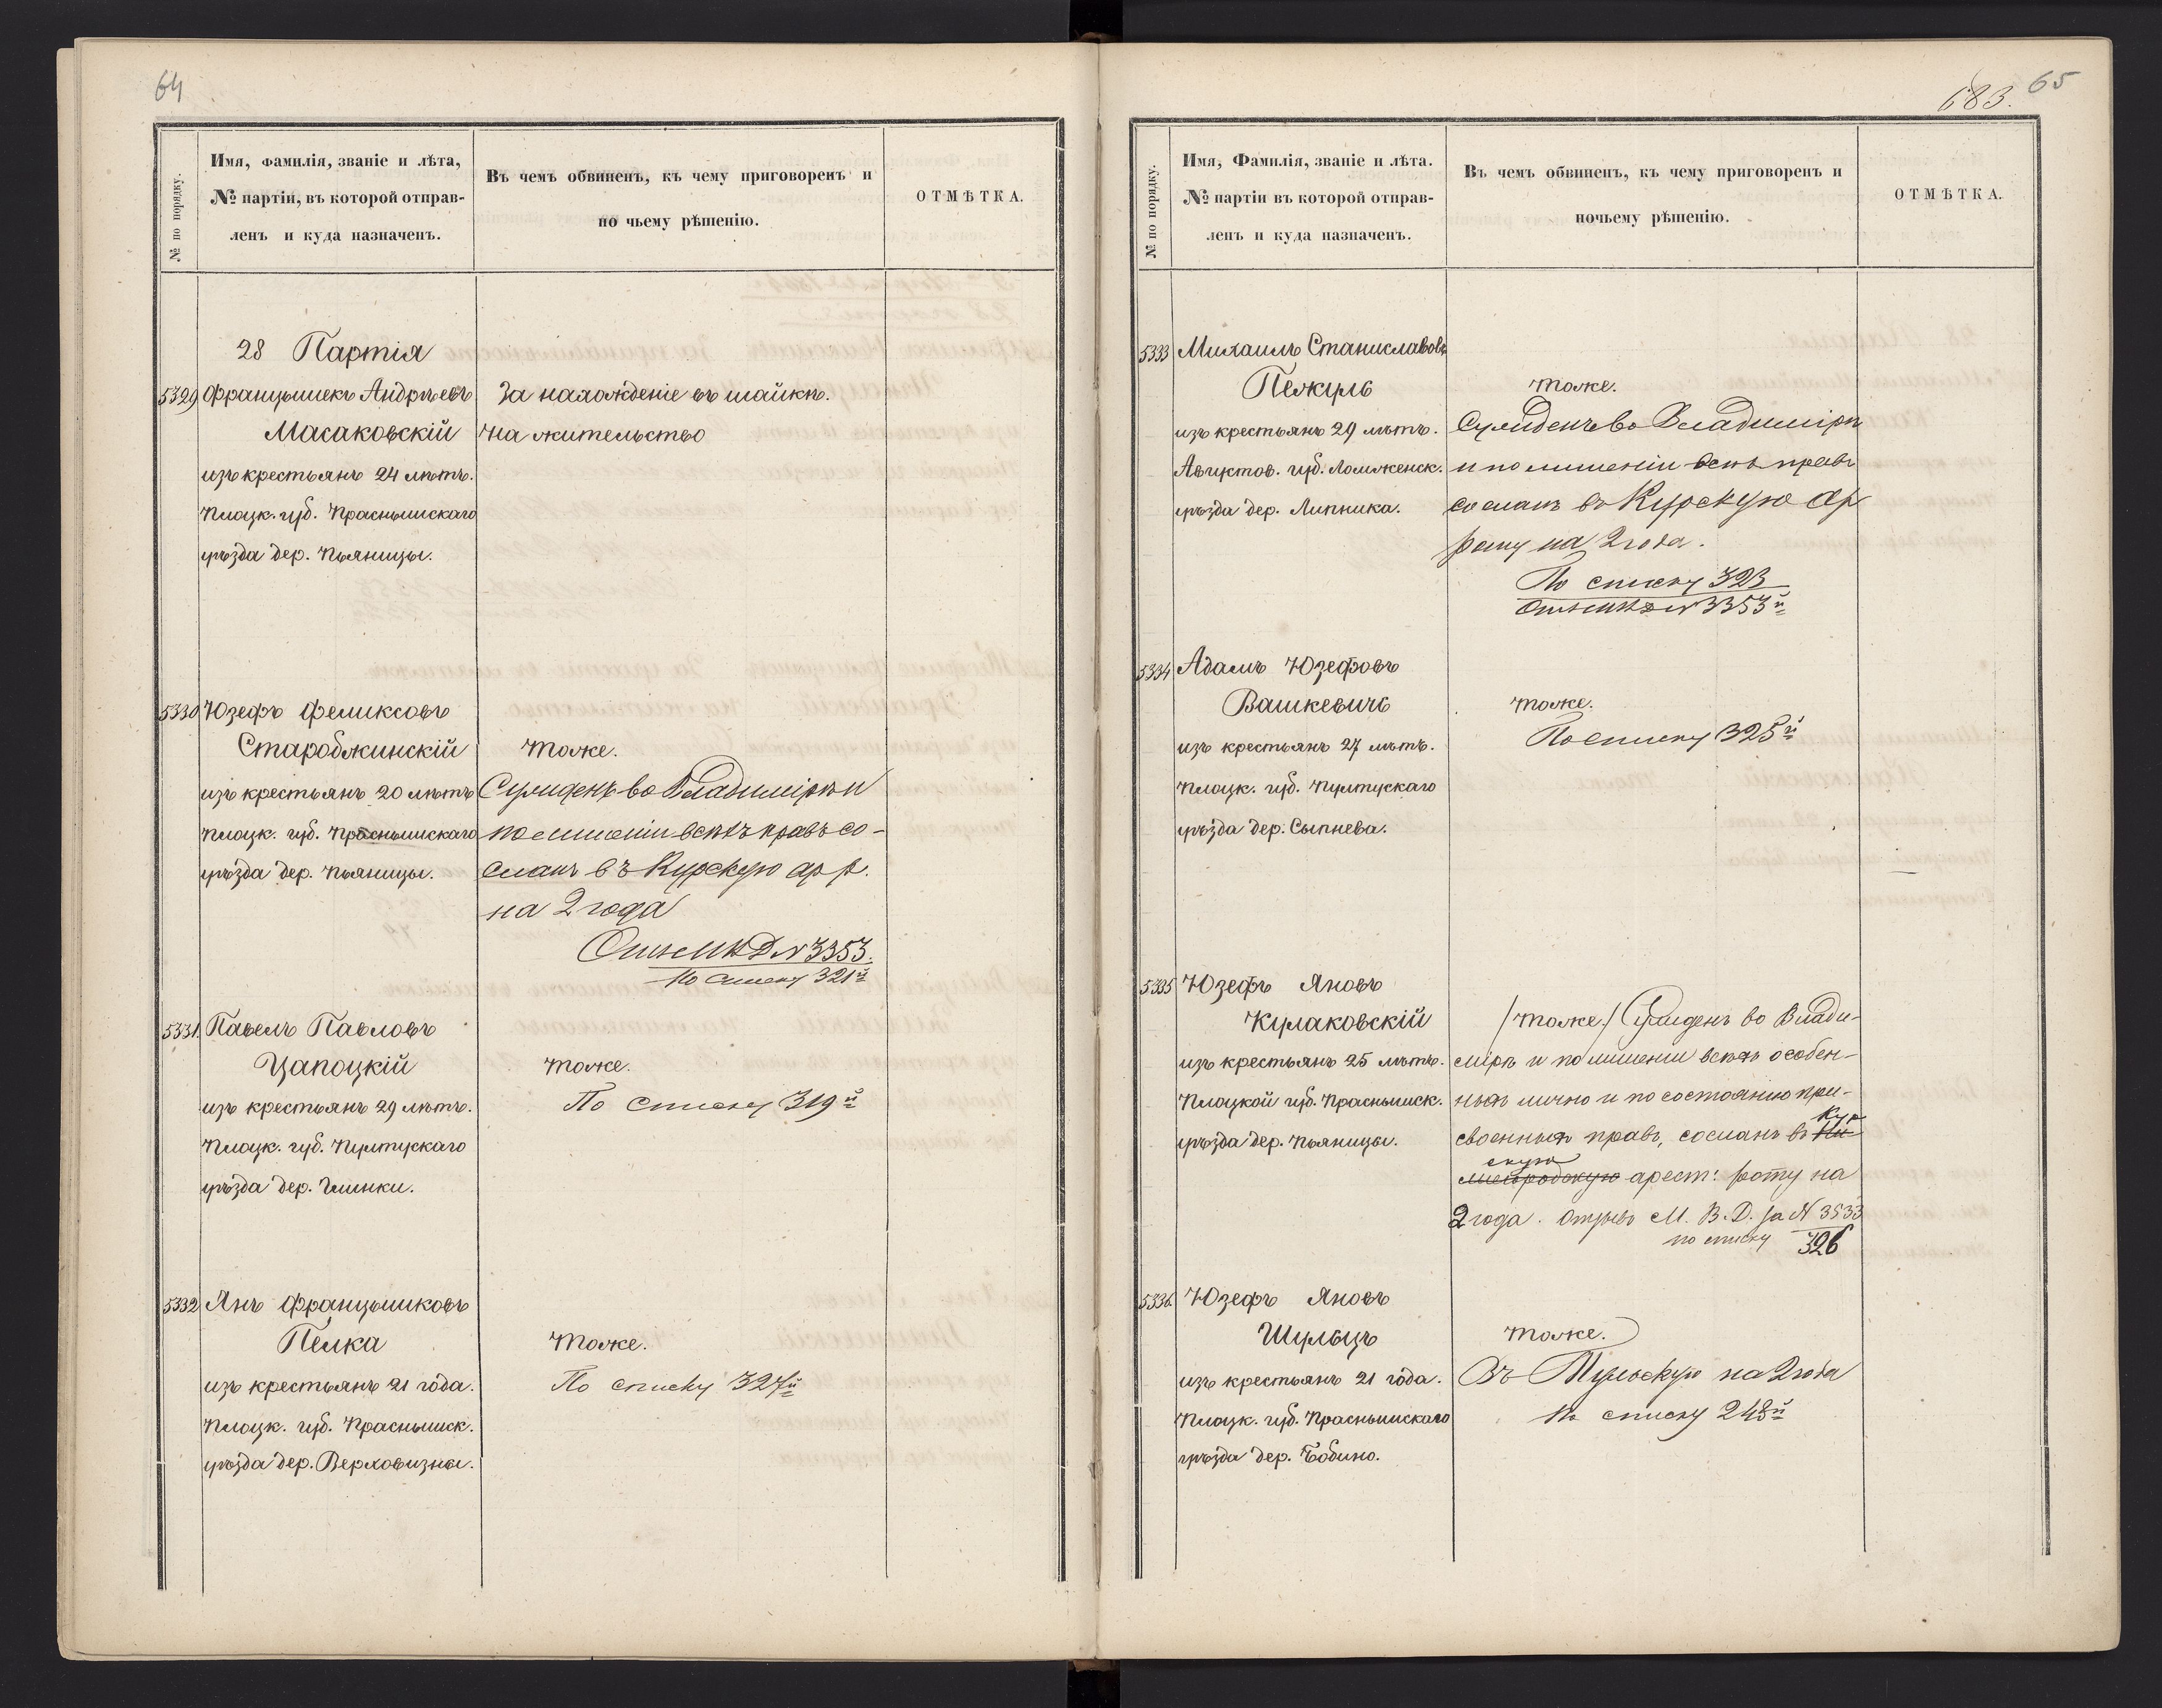 64
№ по порядку.
Имя, фамилія, званіе и лѣта,
№ партіи, въ которой отправ-
ленъ и куда назначенъ.
Въ чемъ обвиненъ, къ чему приговоренъ и
по чьему рѣшенію.
ОТМѢТКА.
28 Партія
5329 Францышекъ Андрѣевъ
Масаковскій
изъ крестьянъ 24 лѣтъ.
Плоцк. губ. Праснышскаго
уѣзда дер. Пьяницы.
За нахожденіе въ шайкѣ.
На жительство
5330 Юзефъ Феликсовъ
Старобжинскій
изъ крестьянъ 20 лѣтъ
Плоцк. губ. Праснышскаго
уѣзда дер. Пьяницы.
Тоже.
Сужденъ во Владимірѣ и
по лишеніи всѣхъ правъ со-
сланъ въ Курскую ар р.
на 2 года
Отн МВД № 3353.
По списку 321й
5331. Павелъ Павловъ
Цапоцкій
изъ крестьянъ 29 лѣтъ.
Плоцк. губ. Пултускаго
уѣзда дер. Глинки.
Тоже.
По списку 319й
5332 Янъ Францышковъ
Пелка
изъ крестьянъ 21 года.
Плоцк. губ. Праснышск.
уѣзда дер. Верховизны.
Тоже.
По списку 327й
65
683.
№ по порядку.
Имя, Фамилія, званіе и лѣта.
№ партіи въ которой отправ-
ленъ и куда назначенъ.
Въ чемъ обвиненъ, къ чему приговоренъ и
почьему рѣшенію.
ОТМѢТКА.
5333 Михаилъ Станиславовъ
Пежуль
изъ крестьянъ 29 лѣтъ.
Августов. губ. Ломженск.
уѣзда дер. Липника.
Тоже.
Сужденъ во Владимірѣ
и по лишеніи всѣхъ правъ
сосланъ въ Курскую ар
роту на 2 года.
По списку 323
Отн МВД № 3353й
5334 Адамъ Юзефовъ
Вашкевичъ
изъ крестьянъ 27 лѣтъ.
Плоцк. губ. Пултускаго
уѣзда дер. Сыпнева.
Тоже.
По списку 325й
5335 Юзефъ Яновъ
Кулаковскій
изъ крестьянъ 25 лѣтъ.
Плоцкой губ. Праснышск.
уѣзда дер. Пьяницы.
/Тоже./ Сужденъ во Влади-
мірѣ и по лишеніи всѣхъ особен-
ныхъ лично и по состоянію при-
своенныхъ правъ, сосланъ въ Кур
скую арест: роту на
2 года. Отзывъ М. В. Д. за № 3533
по списку 326
5336. Юзефъ Яновъ
Шульцъ
изъ крестьянъ 21 года.
Плоцк. губ. Праснышскаго
уѣзда дер. Бобино.
Тоже.
Въ Тульскую на 2 года
По списку 248й